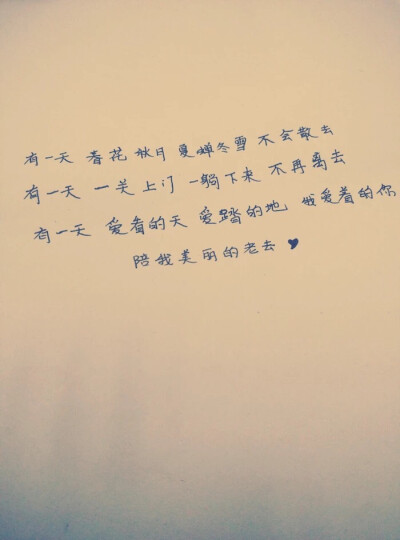 有一天 春花 秋月 夏蝉冬雪 不会散去
有一天 一关上门 一躺下来 不再离去
有一天 爱看的天 爱踏的地 我爱着的你
陪我美丽的老去 ♥